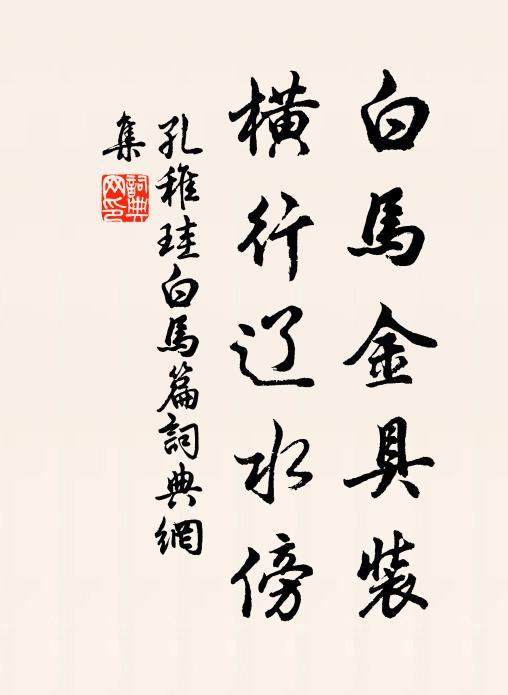 白馬金具裝
橫行辽水傍
孔稚珪白馬篇詞典網
集
詞典網印